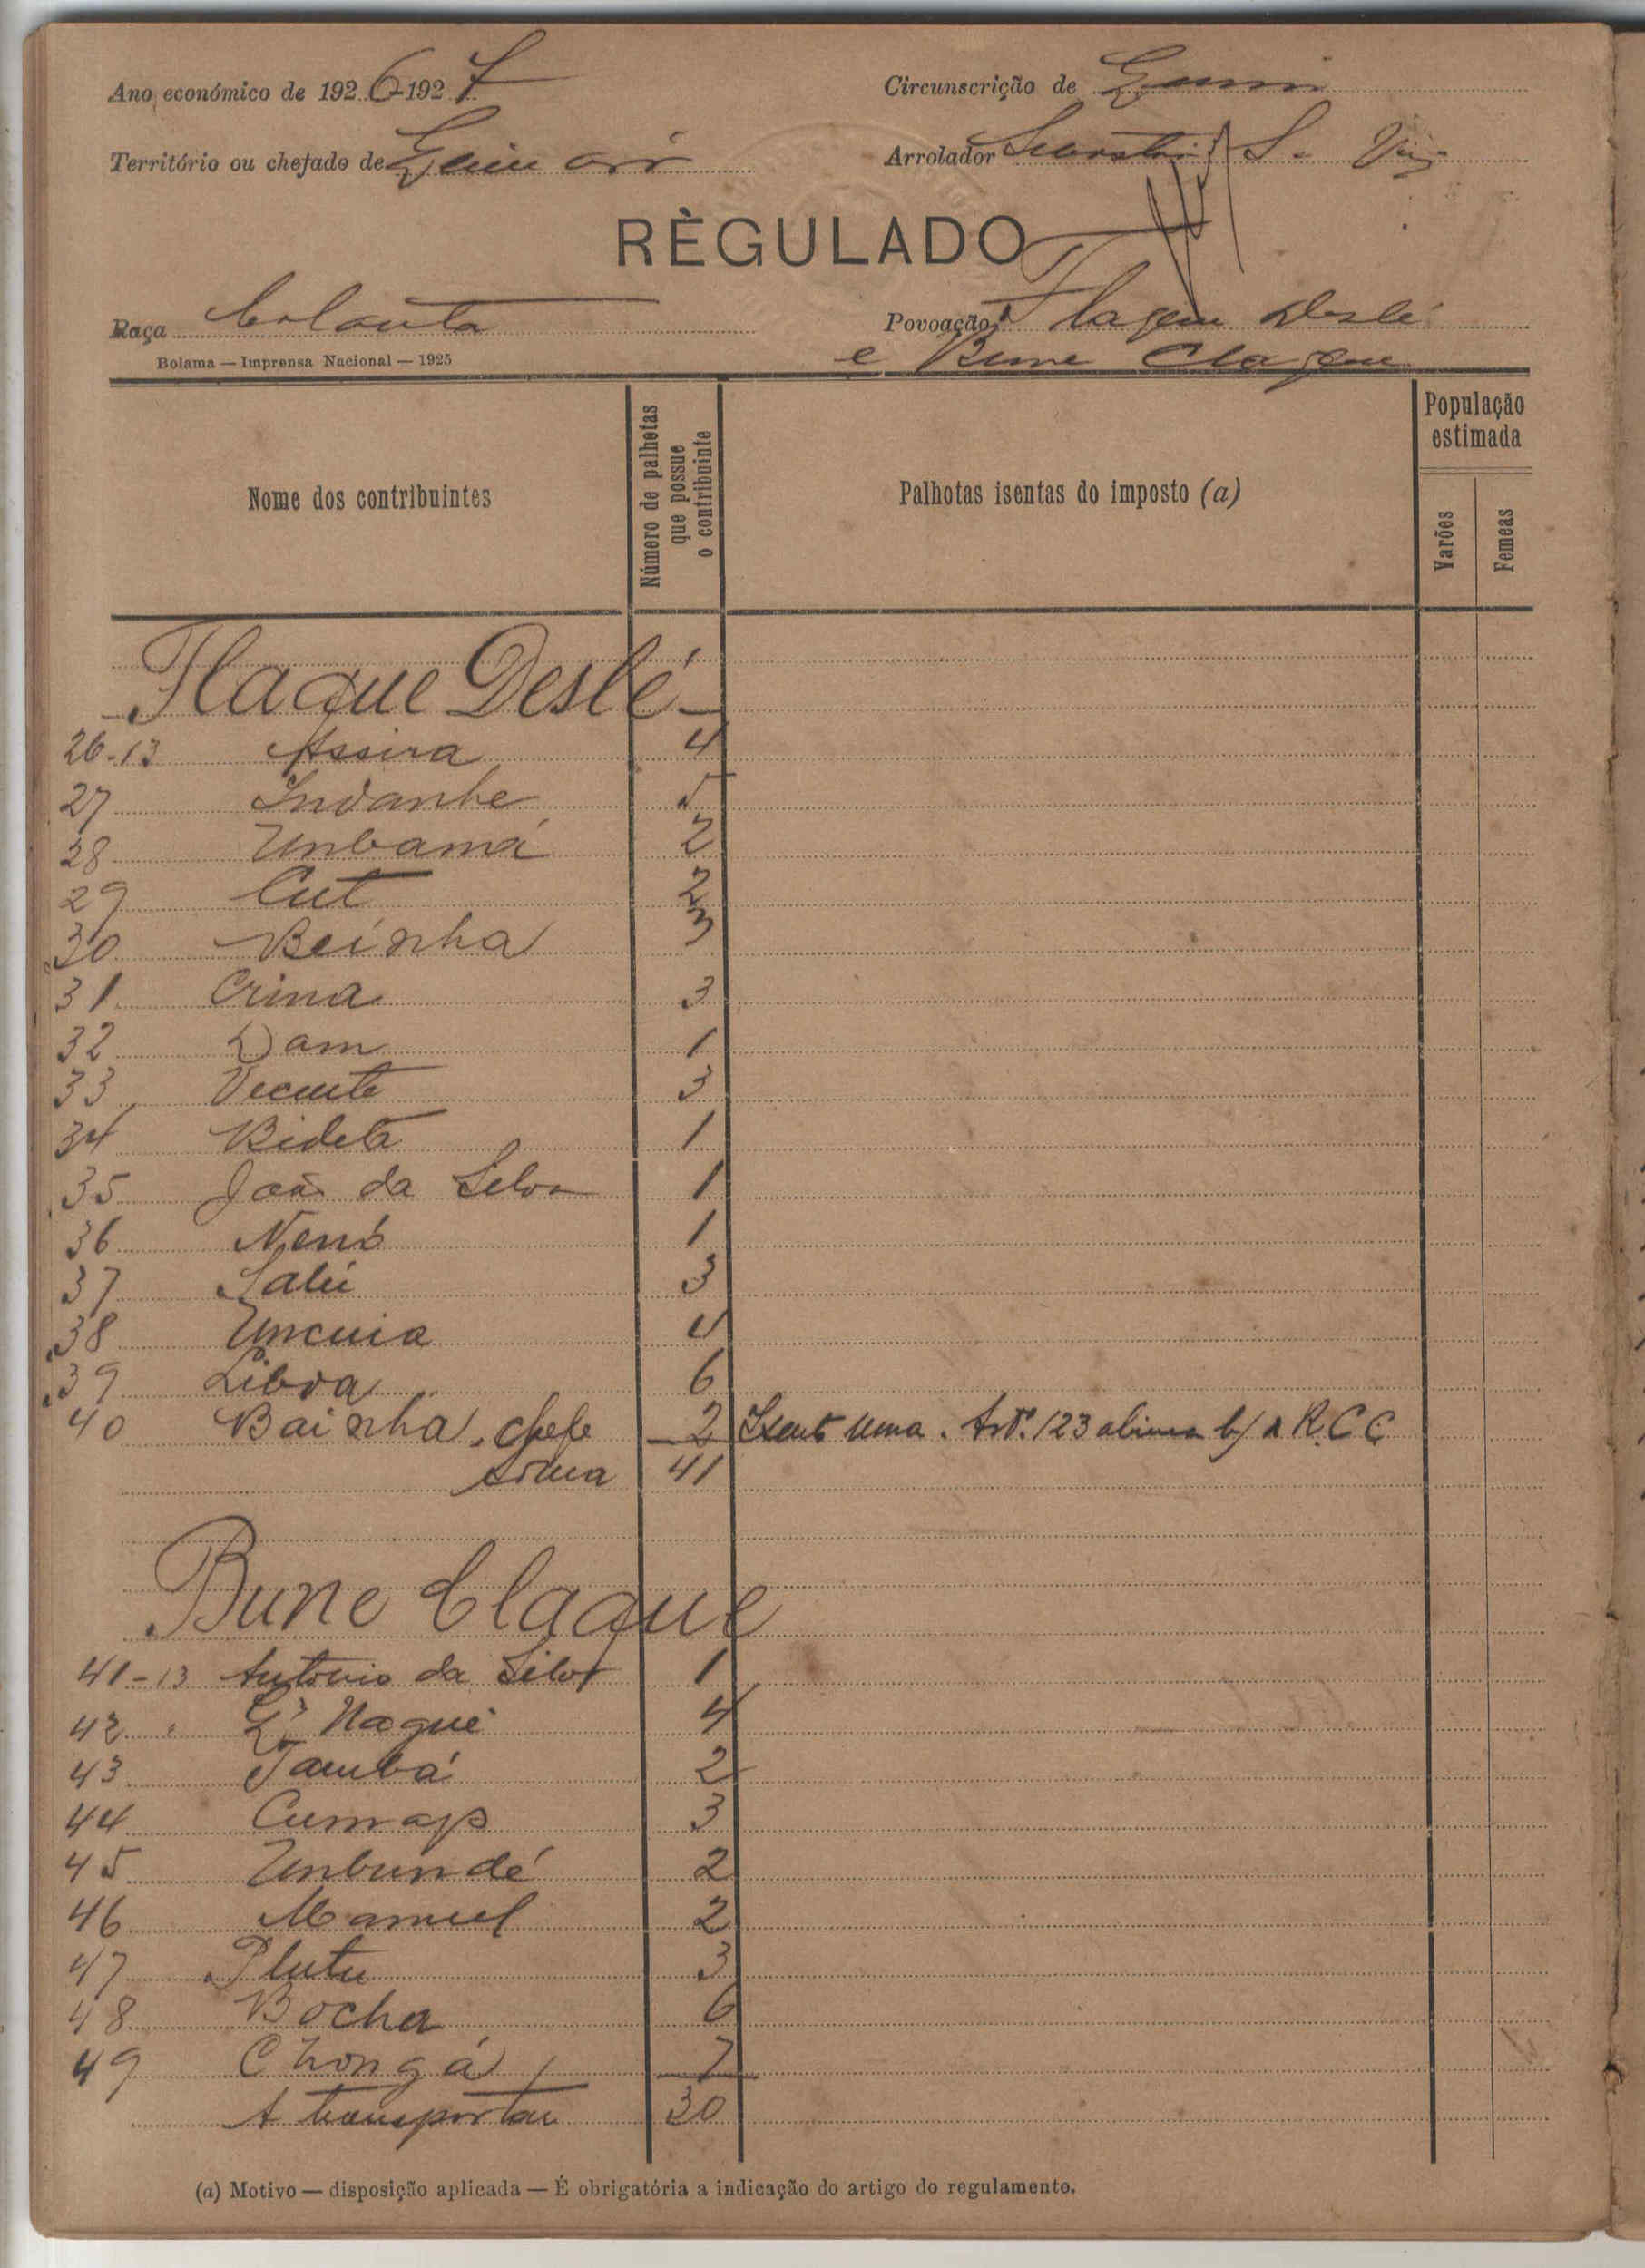 Ano económico de 1926-1927
Circunscrição de
Território ou chefado de
Arrolador S.
RÈGULADO
Raça Bolanta
Povoação Flagem Deslé
e Bune Clagem
Bolama — Imprensa Nacional — 1925
Nome dos contribuintes
Número de palhotas que possue o contribuinte
Palhotas isentas do imposto (a)
População estimada
Varões
Femeas
Flaque Deslé
26-13 Assira 4
27 Indanhe 5
28 Unbamá 2
29 Cut 2
30 Beinha 3
31 Crina 3
32 Dam 1
33 Vecente 3
34 Bideta 1
35 João da Silva 1
36 Nenó 1
37 Salú 3
38 Uncuia 4
39 Libra 6
40 Bainha, chefe 2 Isento uma. Artº. 123 alinea b) d R.C.C
soma 41
Bune Claque
41-13 Antonio da Silva 1
42 " Naqué 4
43 Tambá 2
44 Cumap 3
45 Unbundé 2
46 Manuel 2
47 Plutu 3
48 Bocha 6
49 Chongá 7
A transportar 30
(a) Motivo — disposição aplicada — É obrigatória a indicação do artigo do regulamento.